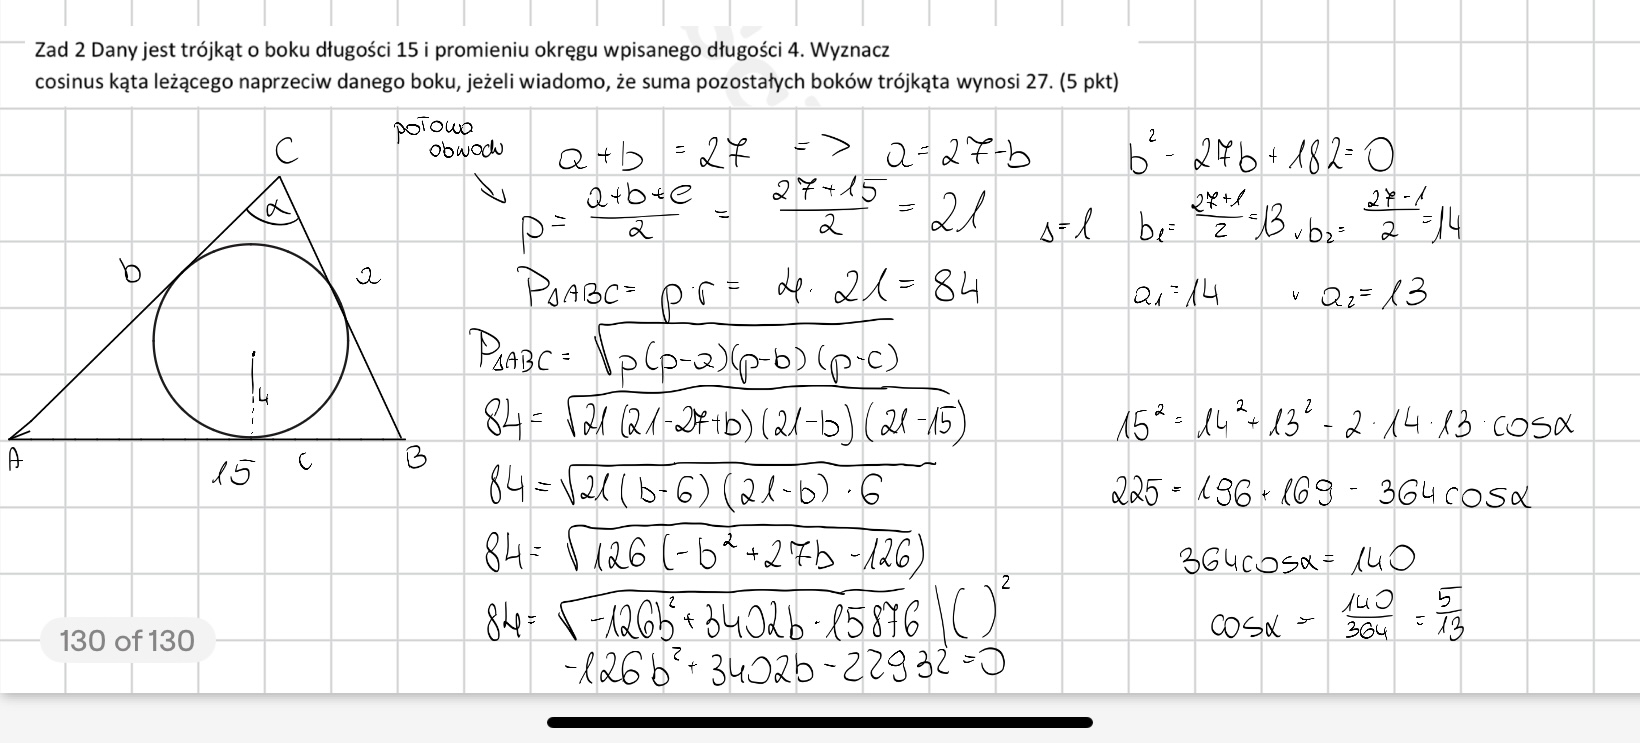 Zad 2 Dany jest trójkąt o boku długości 15 i promieniu okręgu wpisanego długości 4. Wyznacz
cosinus kąta leżącego naprzeciw danego boku, jeżeli wiadomo, że suma pozostałych boków trójkąta wynosi 27. (5 pkt)
C
α
b
a
4
A
15 c
B
połowa
obwodu
a+b = 27 => a = 27-b
p = \frac{a+b+c}{2} = \frac{27+15}{2} = 21
P△ABC = p·r = 4·21 = 84
P△ABC = √(p(p-a)(p-b)(p-c))
84 = √(21(21-27+b)(21-b)(21-15))
84 = √(21(b-6)(21-b)·6)
84 = √(126(-b²+27b-126))
84 = √(-126b²+3402b-15876) |( )²
-126b²+3402b-22932=0
b² - 27b + 182 = 0
s=1 b₁ = \frac{27+1}{2} = 13 v b₂ = \frac{27-1}{2} = 14
a₁ = 14 v a₂ = 13
15² = 14² + 13² - 2·14·13·cosα
225 = 196 + 169 - 364cosα
364cosα = 140
cosα = \frac{140}{364} = \frac{5}{13}
130 of 130